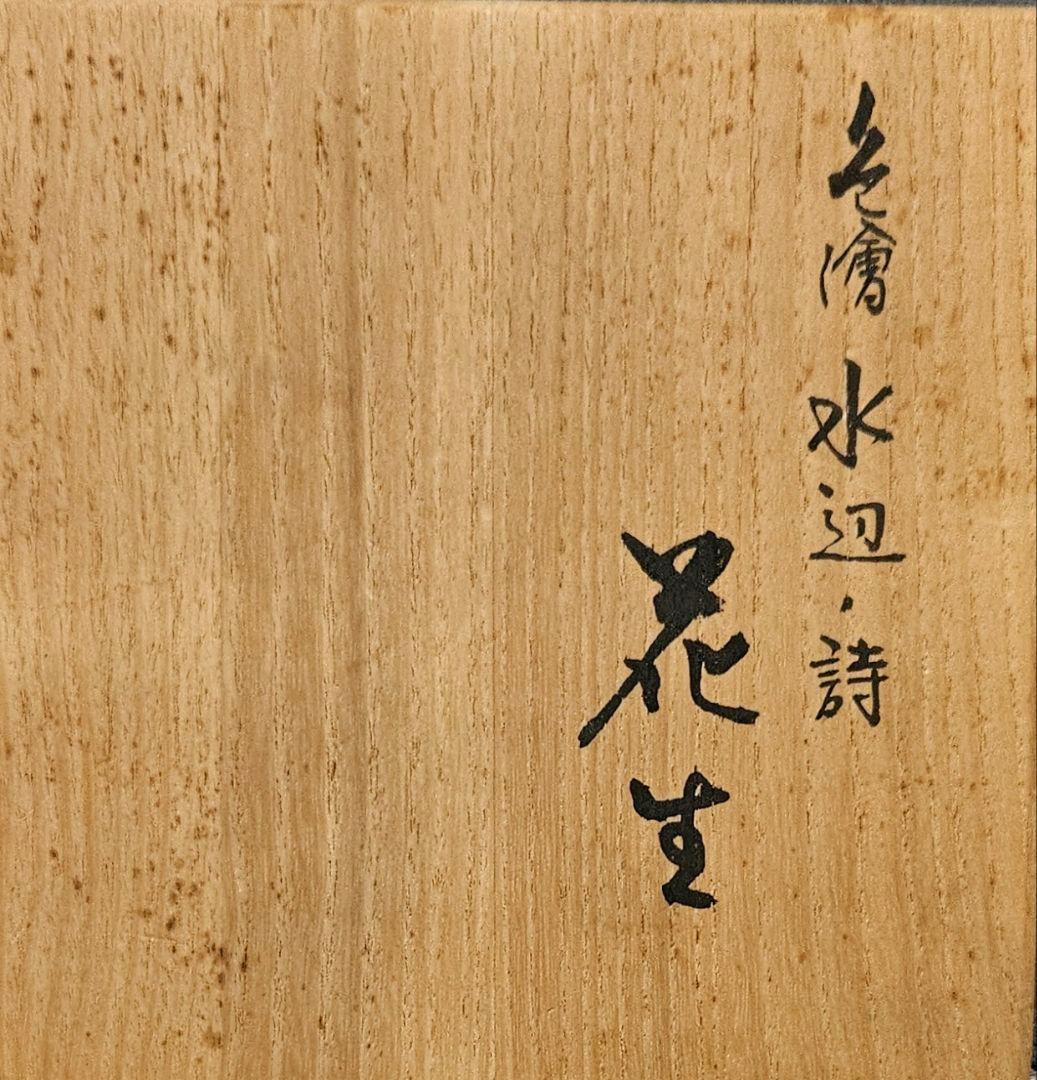 色繪 水辺・詩
花生